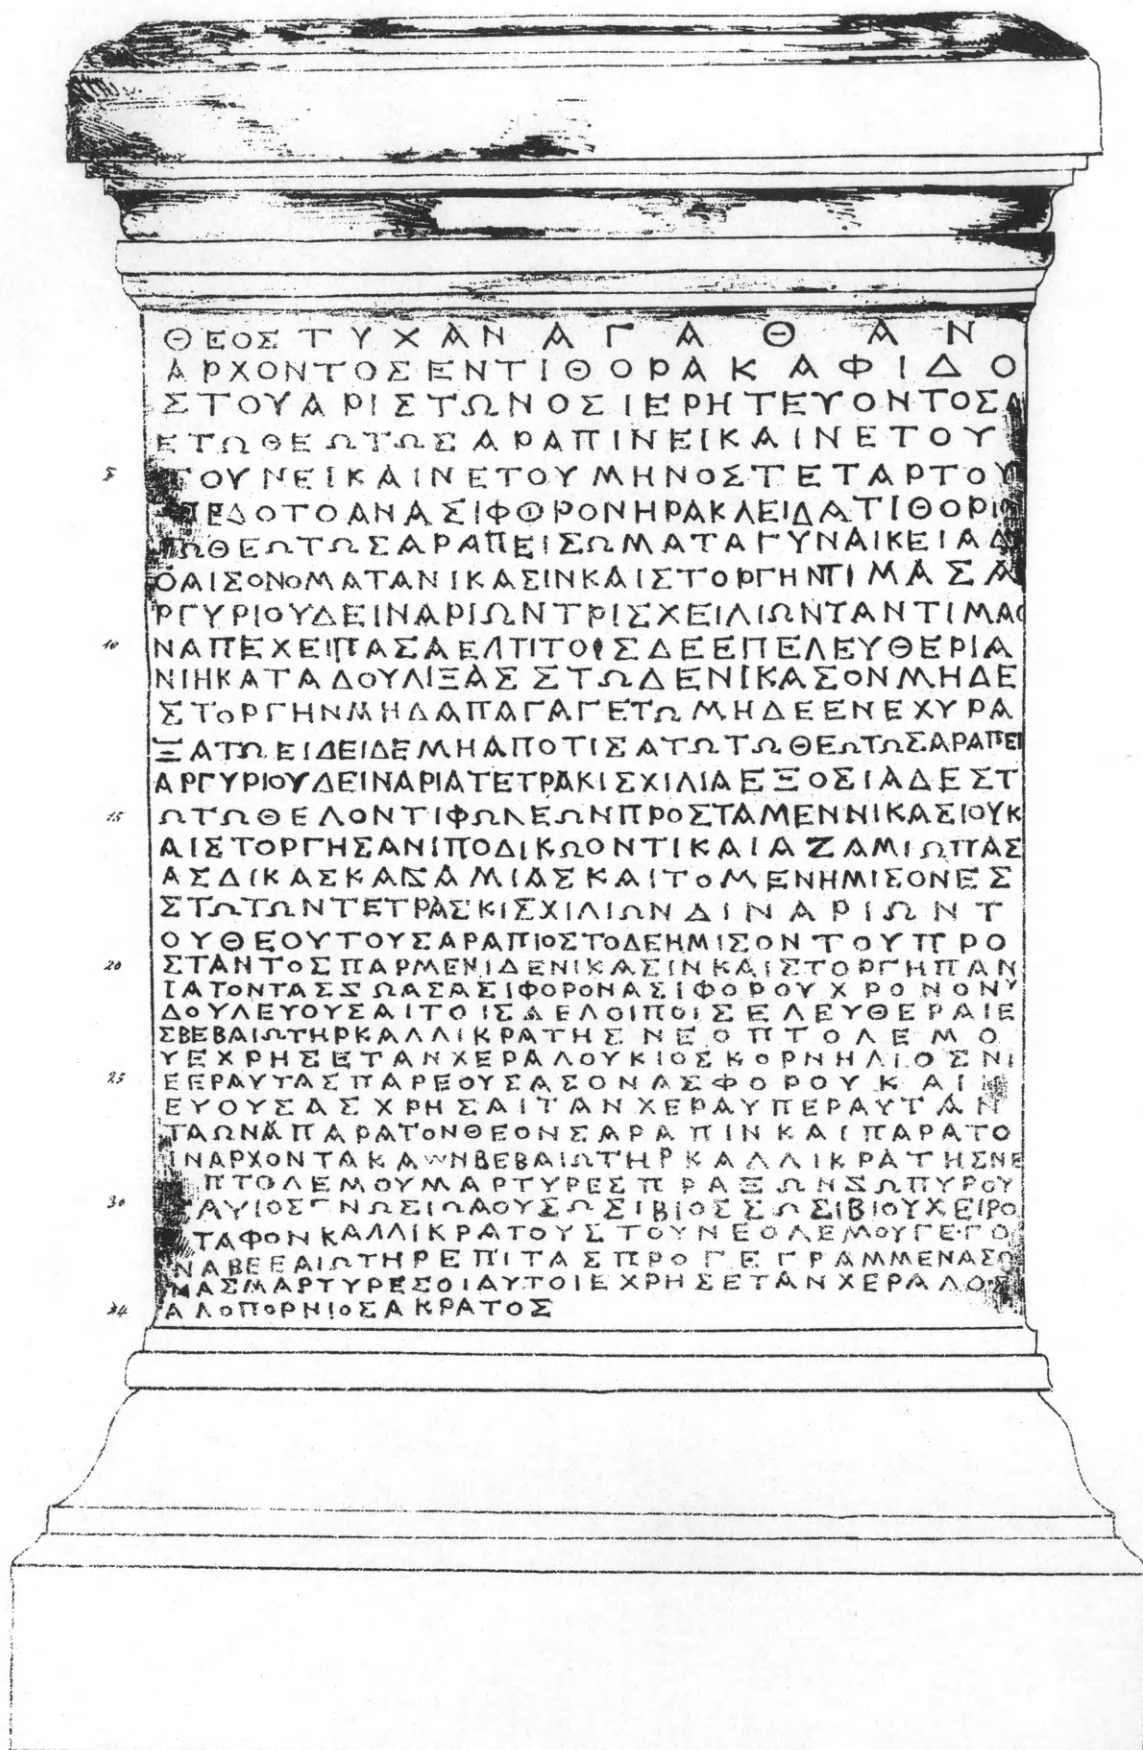 ΘΕΟΣΤΥΧΑΝΑΓΑΘΑΝ
ΑΡΧΟΝΤΟΣΕΝΤΙΘΟΡΑΚΑΦΙΔΟ
ΣΤΟΥΑΡΙΣΤΩΝΟΣΙΕΡΗΤΕΥΟΝΤΟΣΔ
ΕΤΩΘΕΩΤΩΣΑΡΑΠΙΝΕΙΚΑΙΝΕΤΟΥ
5 ΤΟΥΝΕΙΚΑΙΝΕΤΟΥΜΗΝΟΣΤΕΤΑΡΤΟΥ
ΠΕΔΟΤΟΑΝΑΣΙΦΟΡΟΝΗΡΑΚΛΕΙΔΑΤΙΘΟΡΙ
ΤΩΘΕΩΤΩΣΑΡΑΠΕΙΣΩΜΑΤΑΓΥΝΑΙΚΕΙΑΔ
ΟΑΙΣΟΝΟΜΑΤΑΝΙΚΑΣΙΝΚΑΙΣΤΟΡΓΗΝΤΙΜΑΣΑ
ΡΓΥΡΙΟΥΔΕΙΝΑΡΙΩΝΤΡΙΣΧΕΙΛΙΩΝΤΑΝΤΙΜΑ
10 ΝΑΠΕΧΕΙΠΑΣΑΕΛΤΙΤΟΙΣΔΕΕΠΕΛΕΥΘΕΡΙΑ
ΝΙΗΚΑΤΑΔΟΥΛΙΞΑΣΣΤΩΔΕΝΙΚΑΣΟΝΜΗΔΕ
ΣΤΟΡΓΗΝΜΗΔΑΠΑΓΑΓΕΤΩΜΗΔΕΕΝΕΧΥΡΑ
ΞΑΤΩΕΙΔΕΙΔΕΜΗΑΠΟΤΙΣΑΤΩΤΩΘΕΩΤΩΣΑΡΑΠΕΙ
ΑΡΓΥΡΙΟΥΔΕΙΝΑΡΙΑΤΕΤΡΑΚΙΣΧΙΛΙΑΕΞΟΣΙΑΔΕΣΤ
15 ΩΤΩΘΕΛΟΝΤΙΦΩΛΕΩΝΠΡΟΣΤΑΜΕΝΝΙΚΑΣΙΟΥΚ
ΑΙΣΤΟΡΓΗΣΑΝΙΠΟΔΙΚΩΟΝΤΙΚΑΙΑΖΑΜΙΩΠΑΣ
ΑΣΔΙΚΑΣΚΑΙΖΑΜΙΑΣΚΑΙΤΟΜΕΝΗΜΙΣΟΝΕΣ
ΣΤΩΤΩΝΤΕΤΡΑΣΚΙΣΧΙΛΙΩΝΔΙΝΑΡΙΩΝΤ
ΟΥΘΕΟΥΤΟΥΣΑΡΑΠΙΟΣΤΟΔΕΗΜΙΣΟΝΤΟΥΠΡΟ
20 ΣΤΑΝΤΟΣΠΑΡΜΕΝΙΔΕΝΙΚΑΣΙΝΚΑΙΣΤΟΡΓΗΠΑΝ
ΙΑΤΟΝΤΑΣΖΩΑΣΑΣΙΦΟΡΟΝΑΣΙΦΟΡΟΥΧΡΟΝΟΝΥ
ΔΟΥΛΕΥΟΥΣΑΙΤΟΙΣΔΕΛΟΙΠΟΙΣΕΛΕΥΘΕΡΑΙΕ
ΣΒΕΒΑΙΩΤΗΡΚΑΛΛΙΚΡΑΤΗΣΝΕΟΠΤΟΛΕΜΟ
ΥΕΧΡΗΣΕΤΑΝΧΕΡΑΛΟΥΚΙΟΣΚΟΡΝΗΛΙΟΣΝΙ
25 ΕΕΡΑΥΤΑΣΠΑΡΕΟΥΣΑΣΟΝΑΣΦΟΡΟΥΚΑΙ
ΕΥΟΥΣΑΣΧΡΗΣΑΙΤΑΝΧΕΡΑΥΠΕΡΑΥΤΑΝ
ΤΑΩΝΑΠΑΡΑΤΟΝΘΕΟΝΣΑΡΑΠΙΝΚΑΙΠΑΡΑΤΟ
ΙΝΑΡΧΟΝΤΑΚΑΩΝΒΕΒΑΙΩΤΗΡΚΑΛΛΙΚΡΑΤΗΣΝΕ
ΠΤΟΛΕΜΟΥΜΑΡΤΥΡΕΣΠΡΑΞΩΝΖΩΠΥΡΟΥ
30 ΓΑΥΙΟΣΓΝΩΣΙΩΑΟΥΣΩΣΙΒΙΟΣΣΩΣΙΒΙΟΥΧΕΙΡΟ
ΤΑΦΟΝΚΑΛΛΙΚΡΑΤΟΥΣΤΟΥΝΕΟΛΕΜΟΥΓΕΓΟ
ΝΑΒΕΕΑΙΩΤΗΡΕΠΙΤΑΣΠΡΟΓΕΓΡΑΜΜΕΝΑΣΩ
ΝΑΣΜΑΡΤΥΡΕΣΟΙΑΥΤΟΙΕΧΡΗΣΕΤΑΝΧΕΡΑΛΟΣ
34 ΑΛΟΠΟΡΝΙΟΣΑΚΡΑΤΟΣ